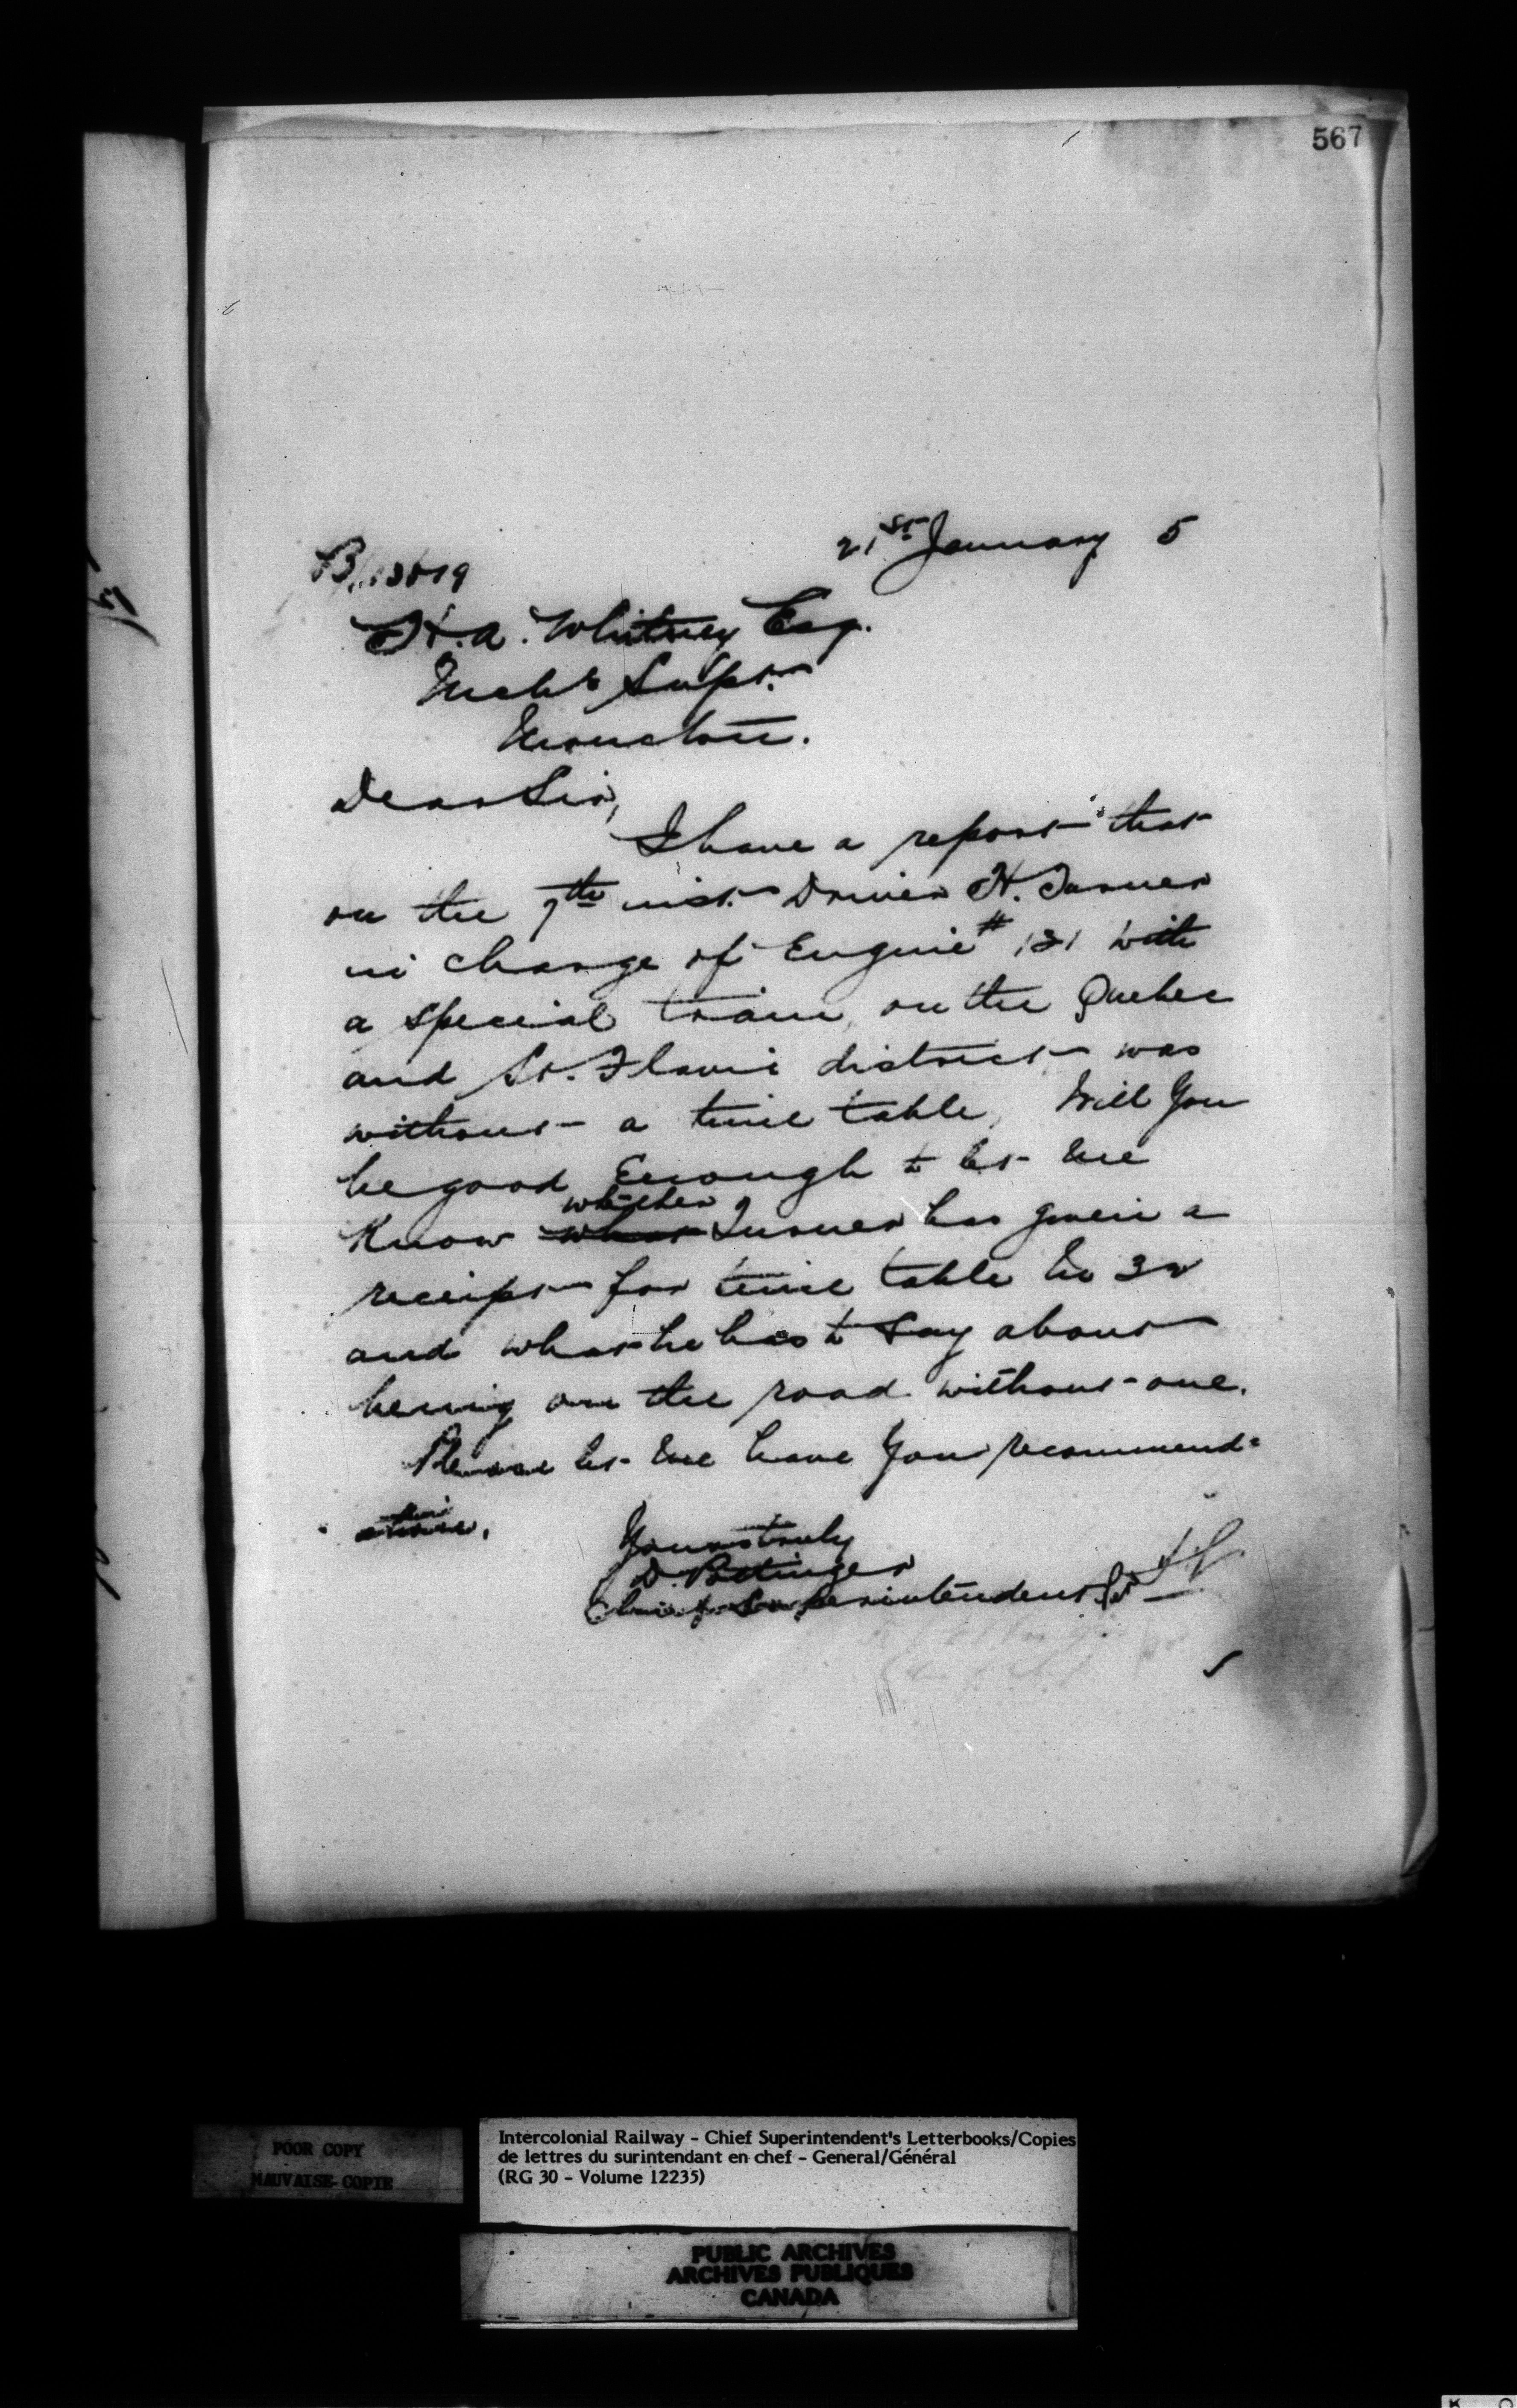 567
21st January 5
B/13819
H. A. Whitney Esq.
Mechl Supt.
Moncton.
Dear Sir,
I have a report that
on the 7th inst. Driver H. Turner
in charge of Engine # 131 with
a special train, on the Quebec
and St. Flavie district was
without a time table, Will you
be good Enough to let me
whether
Know what Turner has given a
receipt for time table No 32
and what he has to say about
being on the road without one.
Please let me have your recommend-
ation.
Yours truly
D. Pottinger
Chief Superintendent Per
POOR COPY
MAUVAISE COPIE
Intercolonial Railway - Chief Superintendent's Letterbooks/Copies
de lettres du surintendant en chef - General/Général
(RG 30 - Volume 12235)
PUBLIC ARCHIVES
ARCHIVES PUBLIQUES
CANADA